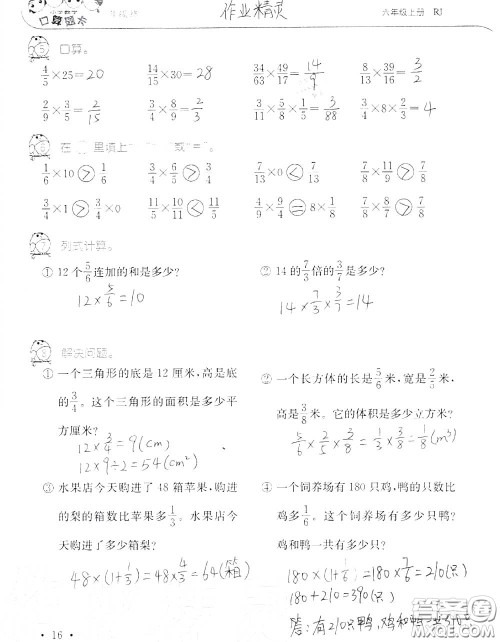 口算题卡 作业精灵 六年级上册 RJ
5 口算。
4/5×25=20 14/15×30=28 34/63×49/17=14/9 3/8×16/9=2/3
2/9×3/5=2/15 3/4×8/9=2/3 3/11×5/8×1/5=3/88 3/4×8×2/3=4
6 在 里填上“ ”“ ”或“=”。
1/6×10>1/6 3/4×6/5>3/4 7/13×0<7/13 7/8×9/11>7/8×3/11
3/4×1>3/4×0 5/11×10/11<5/11 4/9×9/4=8×1/8 7/8×7/7>7/8×7/8
7 列式计算。
① 12个5/6连加的和是多少? ② 14的7/3倍的3/7是多少?
12×5/6=10 14×7/3×3/7=14
8 解决问题。
① 一个三角形的底是12厘米,高是底
的3/4。这个三角形的面积是多少平
方厘米?
12×3/4=9(cm)
12×9÷2=54(cm²)
② 一个长方体的长是5/6米,宽是2/5米,
高是3/8米。它的体积是多少立方米?
5/6×2/5×3/8=1/3×3/8=1/8(m³)
③ 水果店今天购进了48箱苹果,购进
的梨的箱数比苹果多1/3。水果店今
天购进了多少箱梨?
48×(1+1/3)=48×4/3=64(箱)
④ 一个饲养场有180只鸡,鸭的只数比
鸡多1/6。这个饲养场有多少只鸭?
鸡和鸭一共有多少只?
180×(1+1/6)=180×7/6=210(只)
180+210=390(只)
答:有210只鸭,鸡和鸭一共
· 16 ·